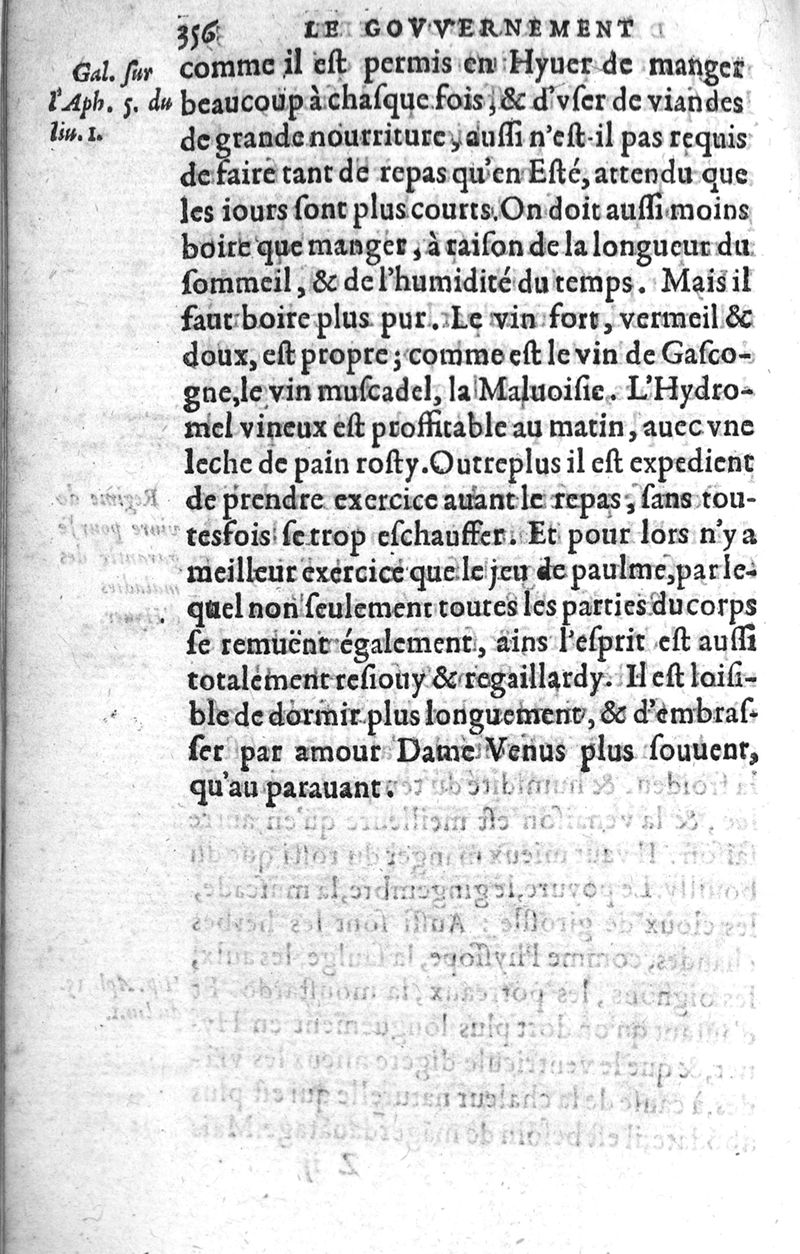 356 LE GOVVERNEMENT
Gal. ſur
l'Aph. 5. du
liu. 1.
comme il eſt permis en Hyuer de manger
beaucoup à chaſque fois, & d'vſer de viandes
de grande nourriture, auſſi n'eſt-il pas requis
de faire tant de repas qu'en Eſté, attendu que
les iours ſont plus courts. On doit auſſi moins
boire que manger, à raiſon de la longueur du
ſommeil, & de l'humidité du temps. Mais il
faut boire plus pur. Le vin fort, vermeil &
doux, eſt propre; comme eſt le vin de Gaſco-
gne, le vin muſcadel, la Maluoiſie. L'Hydro-
mel vineux eſt proffitable au matin, auec vne
leche de pain roſty. Outreplus il eſt expedient
de prendre exercice auant le repas, ſans tou-
tesfois ſe trop eſchauffer. Et pour lors n'y a
meilleur exercice que le jeu de paulme, par le-
quel non ſeulement toutes les parties du corps
ſe remuënt également, ains l'eſprit eſt auſſi
totalement reſiouy & regaillardy. Il eſt loiſi-
ble de dormir plus longuement, & d'embraſ-
ſer par amour Dame Venus plus ſouuent,
qu'au parauant.